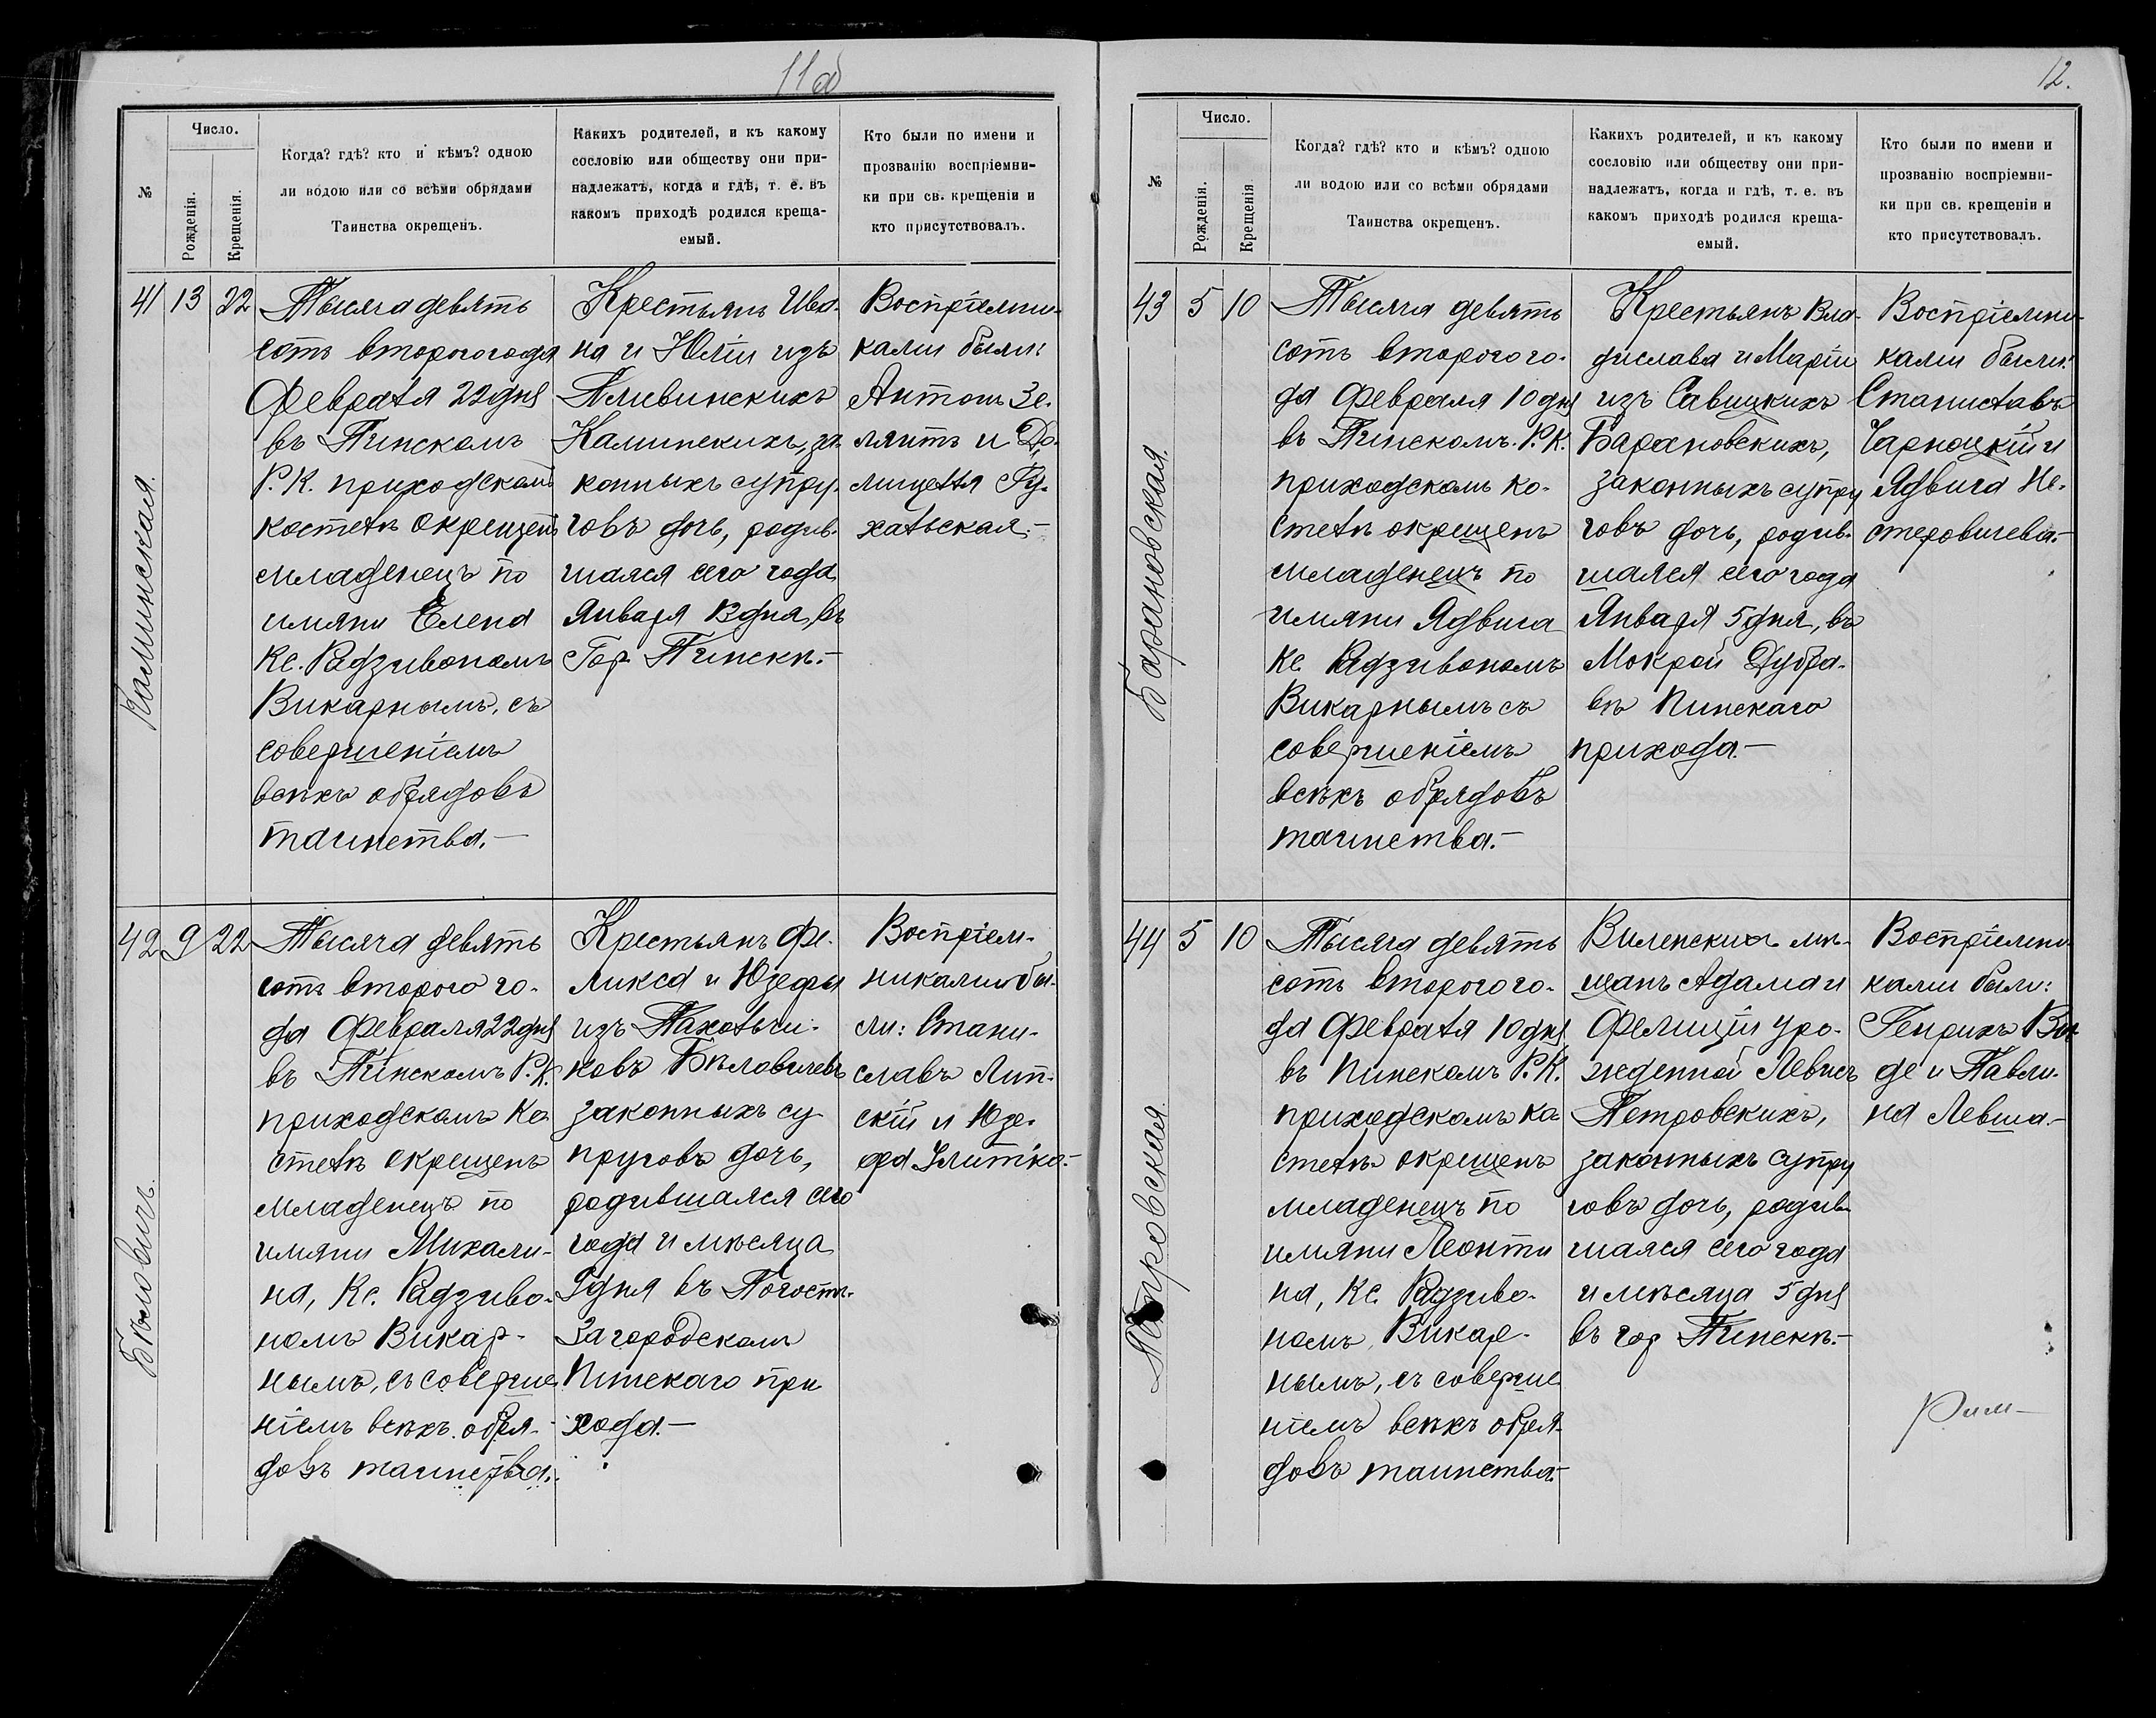 11об
№
Число.
Рожденія.
Крещенія.
Когда? гдѣ? кто и кѣмъ? одною
ли водою или со всѣми обрядами
Таинства окрещенъ.
Какихъ родителей, и къ какому
сословію или обществу они при-
надлежатъ, когда и гдѣ, т. е. въ
какомъ приходѣ родился креща-
емый.
Кто были по имени и
прозванію воспріемни-
ки при св. крещеніи и
кто присутствовалъ.
41 13 22
Каминская.
Тысяча девять
сотъ второго года
Февраля 22 дня
въ Пинскомъ
Р. К. приходскомъ
костелѣ окрещенъ
младенецъ по
имяни Елена
Кс. Радзивономъ
Викарнымъ, съ
совершеніемъ
всѣхъ обрядовъ
таинства.—
Крестьянъ Ива-
на и Юліи изъ
Пливинскихъ
Каминскихъ, за-
конныхъ супру-
говъ дочь, родив-
шаяся сего года
Января 13 дня, въ
Гор. Пинскѣ.—
Воспріемни-
ками были:
Антонъ Зе-
лянтъ и До-
мицелля Ру-
хальская.—
42 9 22
Бѣловичъ.
Тысяча девять
сотъ второго го-
да Февраля 22 дня
въ Пинскомъ Р. К.
приходскомъ ко-
стелѣ окрещенъ
младенецъ по
имяни Михали-
на, Кс. Радзиво-
номъ Викар-
нымъ, съ соверше
ніемъ всѣхъ обря-
довъ таинства.
Крестьянъ Фе-
ликса и Юзефы
изъ Пахольчи-
ковъ Бѣловичевъ
законныхъ су-
пруговъ дочь,
родившаяся сего
года и мѣсяца
9 дня въ Погостѣ-
Загородскомъ
Пинскаго при
хода.—
Воспріем-
никами бы-
ли: Стани-
славъ Лип-
скій и Юзе-
фа Улитко.—
12.
№
Число.
Рожденія.
Крещенія
Когда? гдѣ? кто и кѣмъ? одною
ли водою или со всѣми обрядами
Таинства окрещенъ.
Какихъ родителей, и къ какому
сословію или обществу они при-
надлежатъ, когда и гдѣ, т. е. въ
какомъ приходѣ родился креща-
емый.
Кто были по имени и
прозванію воспріемни-
ки при св. крещеніи и
кто присутствовалъ.
43 5 10
Барановская.
Тысяча девять
сотъ второго го-
да Февраля 10 дня
въ Пинскомъ Р. К.
приходскомъ ко-
стелѣ окрещенъ
младенецъ по
имяни Ядвига
Кс. Радзивономъ
Викарнымъ съ
совершеніемъ
всѣхъ обрядовъ
таинства.—
Крестьянъ Вла-
дислава и Маріи
изъ Савицкихъ
Барановскихъ,
законныхъ супру
говъ дочь, родив-
шаяся сего года
Января 5 дня, въ
Мокрой Дубра-
вѣ Пинскаго
прихода.—
Воспріемни-
ками были:
Станиславъ
Чарноцкій и
Ядвига Не-
стеровичева.—
44 5 10
Петровская.
Тысяча девять
сотъ второго го-
да Февраля 10 дня
въ Пинскомъ Р. К.
приходскомъ ко-
стелѣ окрещенъ
младенецъ по
имяни Леонти
на, Кс. Радзиво-
номъ Викар-
нымъ, съ соверше
ніемъ всѣхъ обря-
довъ таинства.—
Виленскихъ мѣ-
щанъ Адама и
Фелиціи уро-
жденной Левшъ
Петровскихъ,
законныхъ супру
говъ дочь, родив-
шаяся сего года
и мѣсяца 5 дня
въ гор Пинскѣ.—
Воспріемни-
ками были:
Генрихъ
де и Павли-
на Левша.—
Рим—